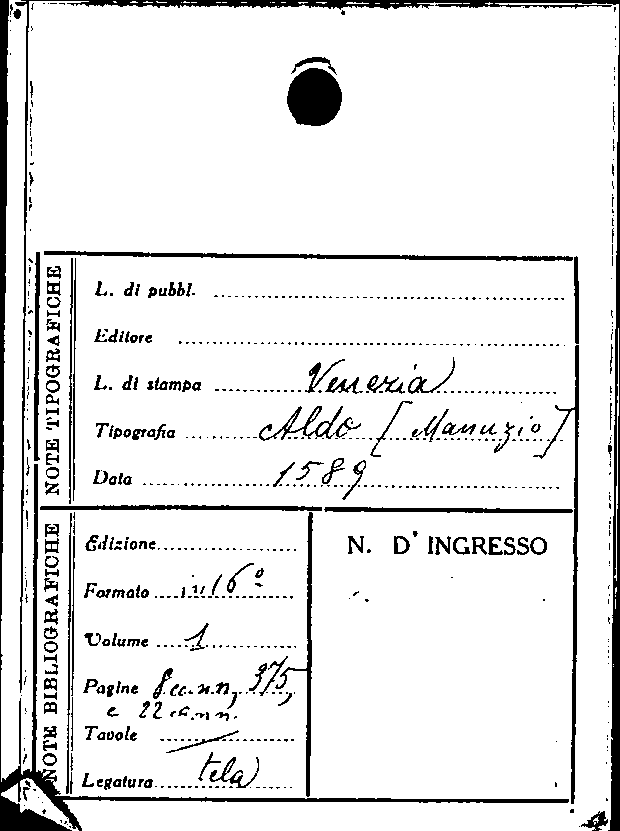 NOTE TIPOGRAFICHE
L. di pubbl.
Editore
L. di stampa Venezia
Tipografia Aldo [Manuzio]
Data 1589
NOTE BIBLIOGRAFICHE
Edizione
Formato in 16º
Volume 1
Pagine 8 cc. n.n., 375,
e 22 cc. n.n.
Tavole /
Legatura tela
N. D' INGRESSO